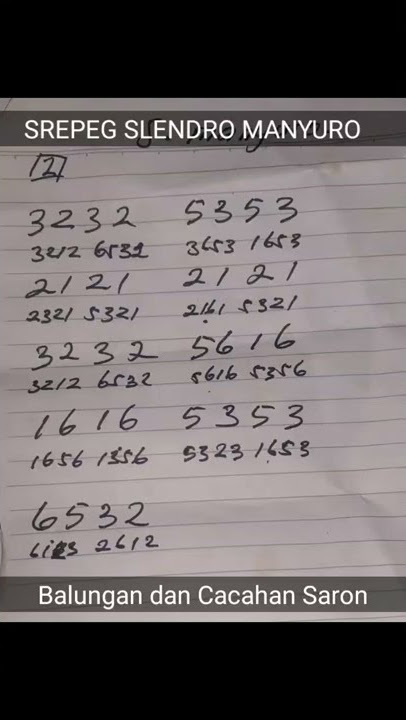 SREPEG SLENDRO MANYURO
2
3232 5353
3212 6532 3653 1653
2121 2121
2321 5321 2161 5321
3232 5616
3212 6532 5616 5356
1616 5353
1656 1356 5323 1653
6532
2612
Balungan dan Cacahan Saron